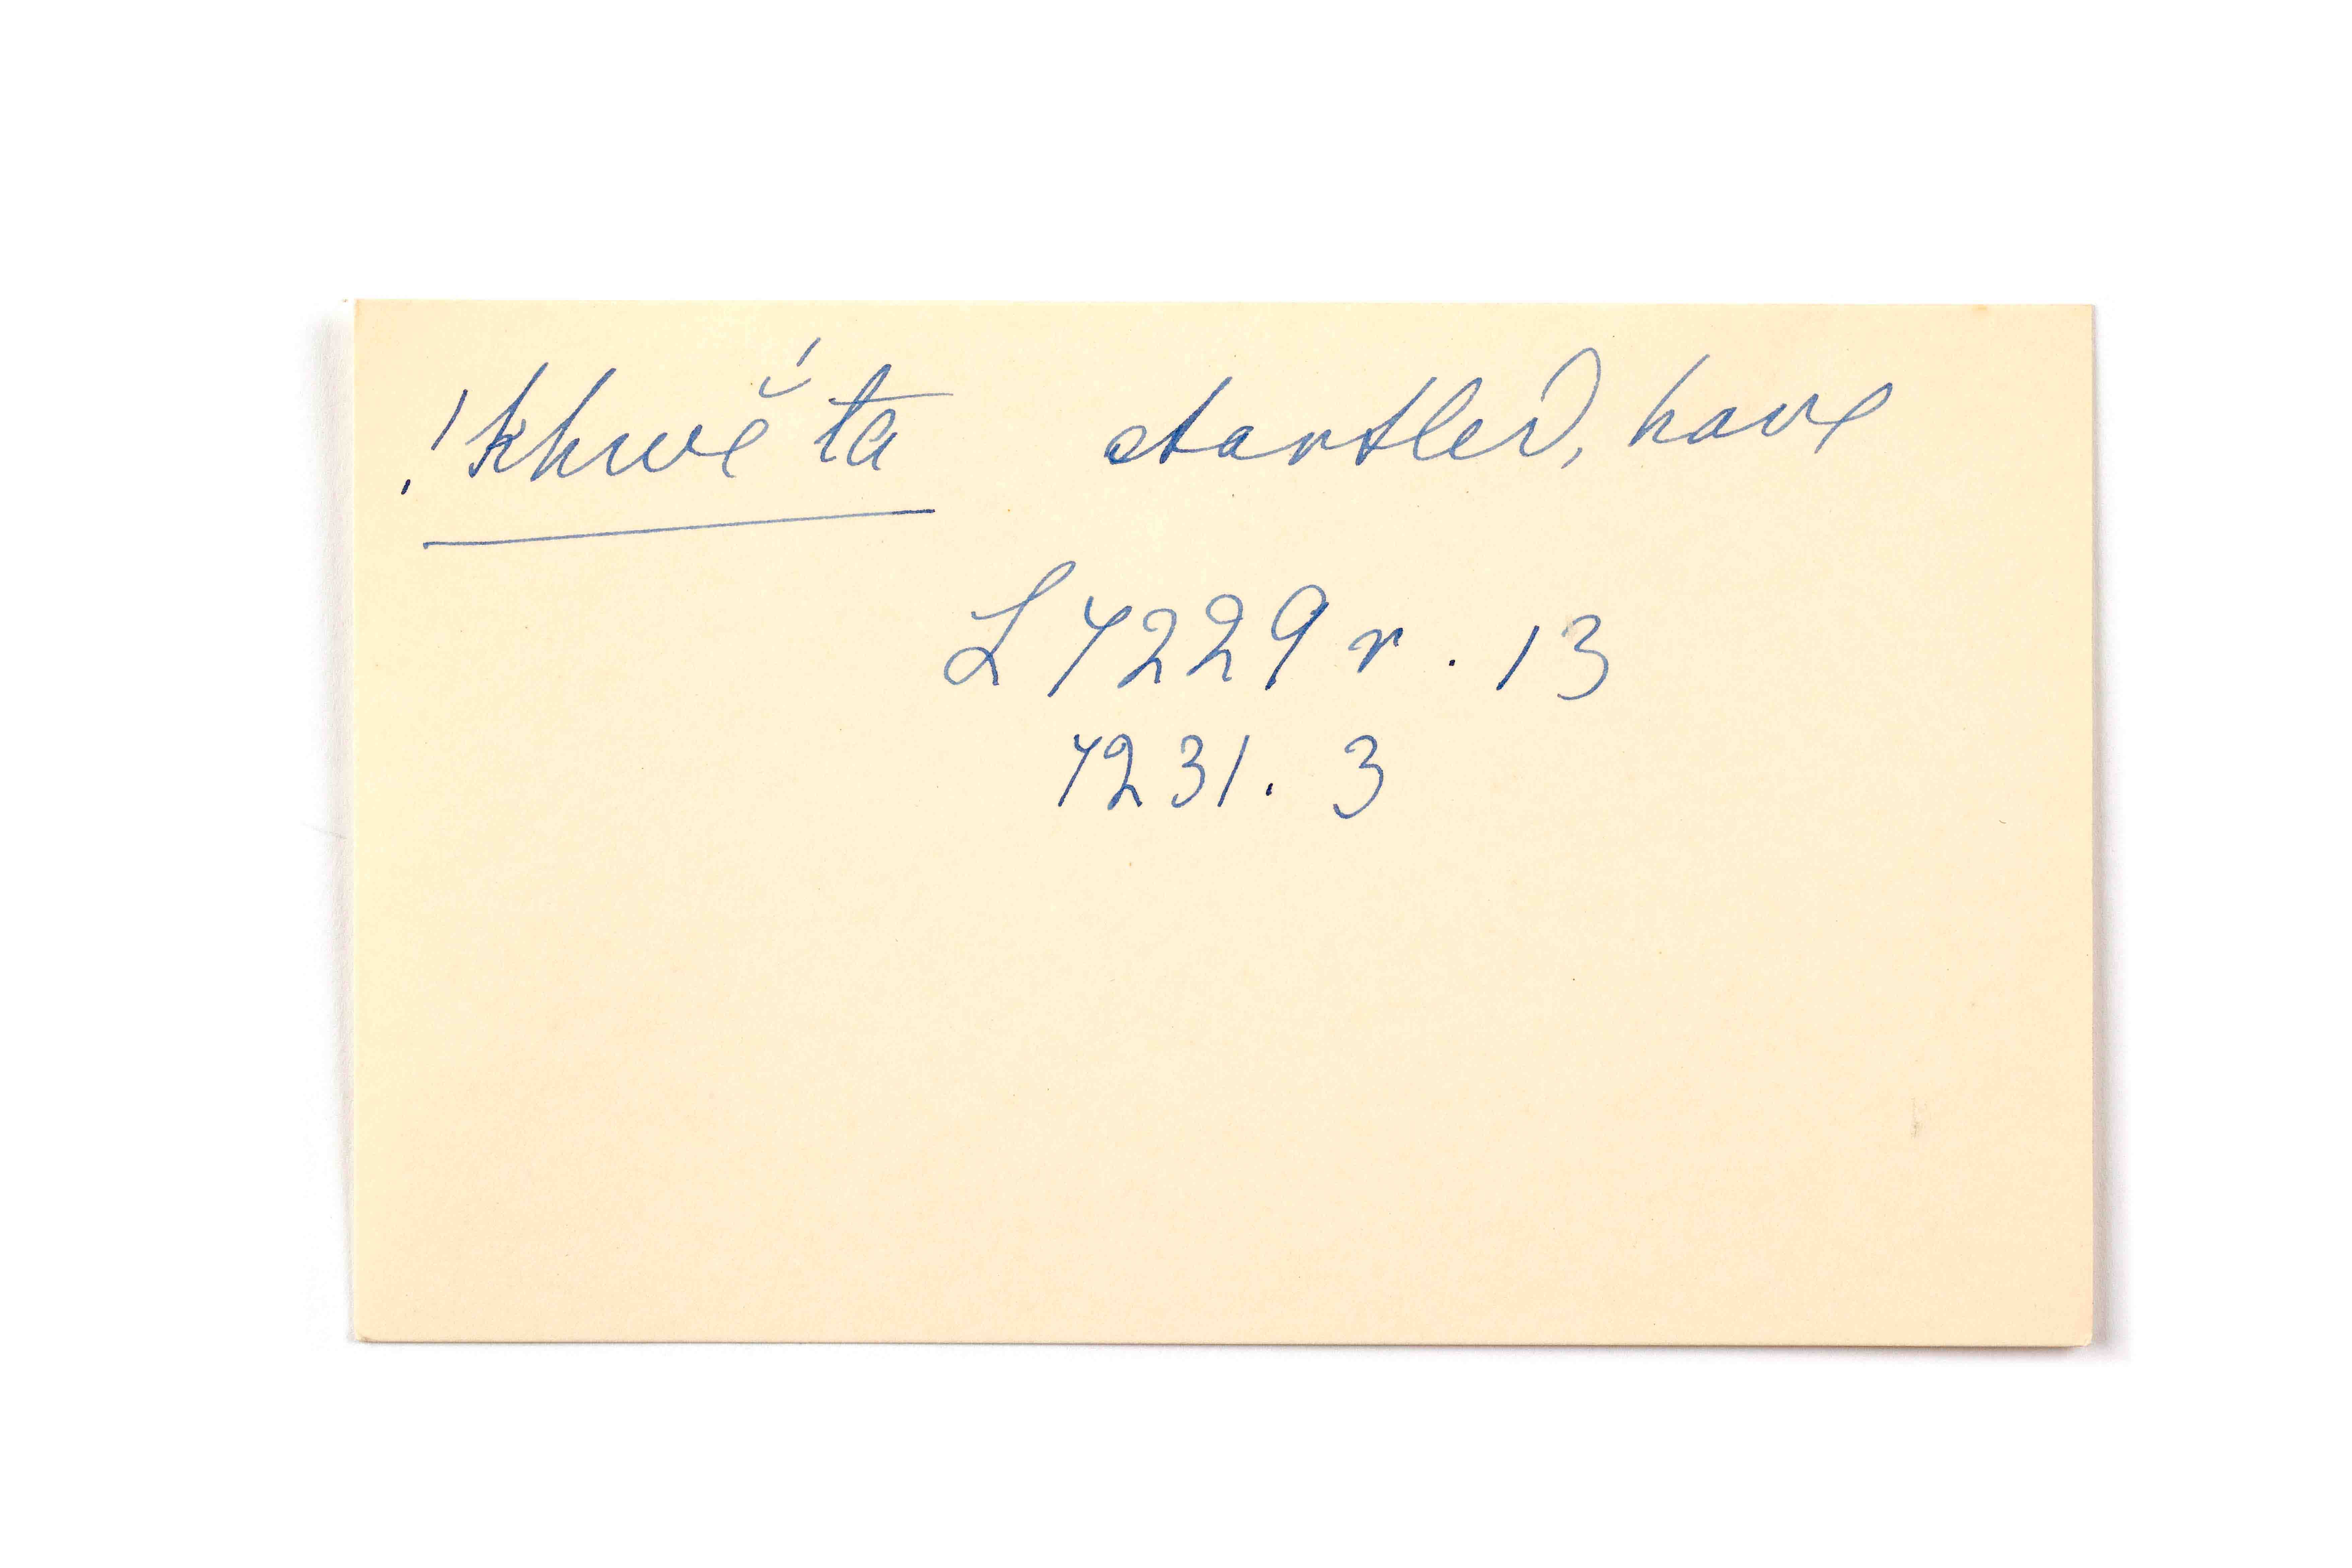 !khwĕ́ta startled, have
L 7229 r. 13
7231. 3